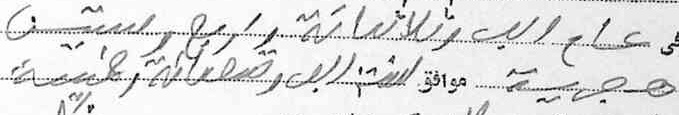 في عام الف وثلاثمائة واربع وستين
هجرية موافق لسنة الف وتسعمائة